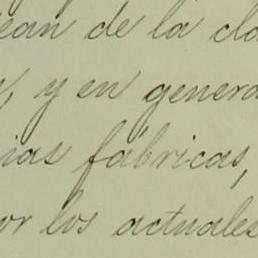 ean de la cla
, y en genera
ias fábricas,
or los actuales